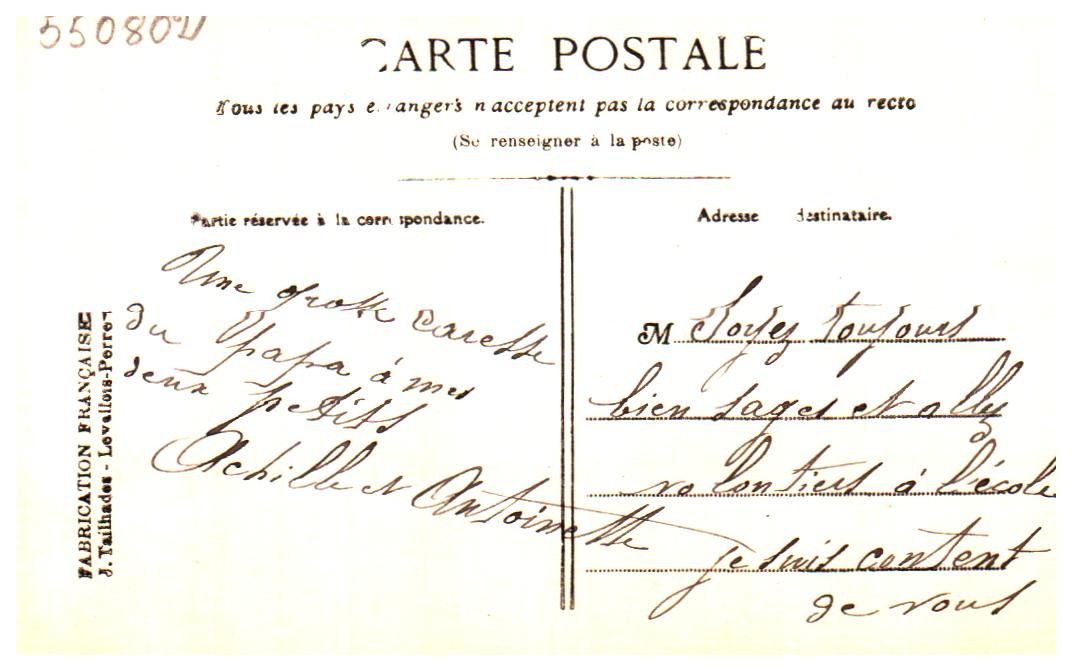 550802
CARTE POSTALE
Tous les pays étrangers n'acceptent pas la correspondance au recto
(Se renseigner à la poste)
Partie réservée à la correspondance.
Adresse destinataire.
Une grosse caresse
du papa à mes
deux petits
Achille et Antoinette
M Soyez toujours
bien sages et allez
volontiers à l'école
je suis content
de vous
FABRICATION FRANÇAISE
J. Tailhades - Levallois-Perret